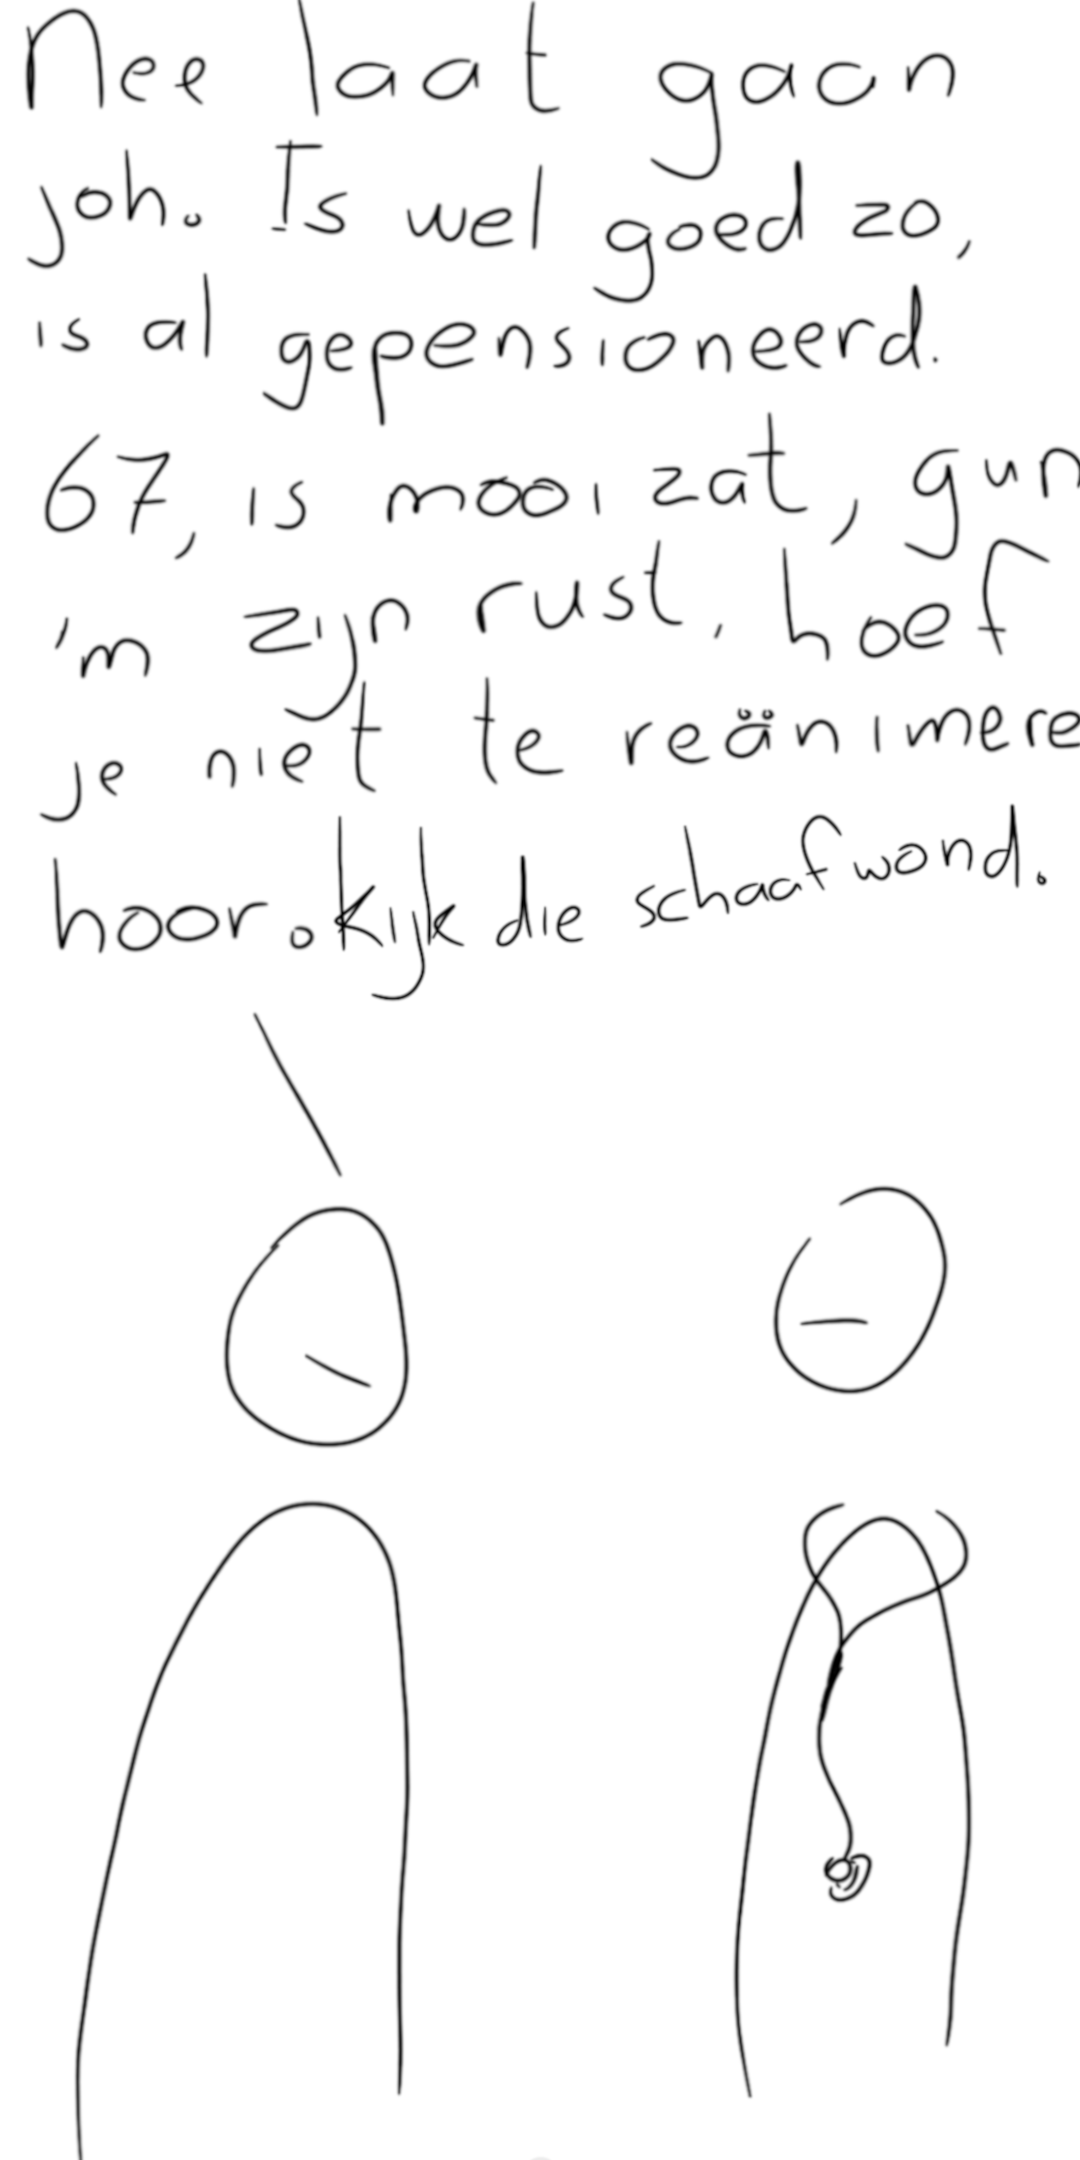 Nee laat gaan
joh. Is wel goed zo,
is al gepensioneerd.
67, is mooi zat, gun
'm zijn rust, hoef
je niet te reänimere
hoor. Kijk die schaafwond.